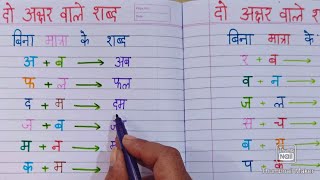 दो अक्षर वाले शब्द
बिना मात्रा के शब्द
अ + ब → अब
फ + ल → फल
द + म → दम
ज + ब →
म + न →
क + म →
दो अक्षर वाले शब्द
बिना मात्रा के
र + ब
व + न
ज + ल
स + च
ब + स
प + क